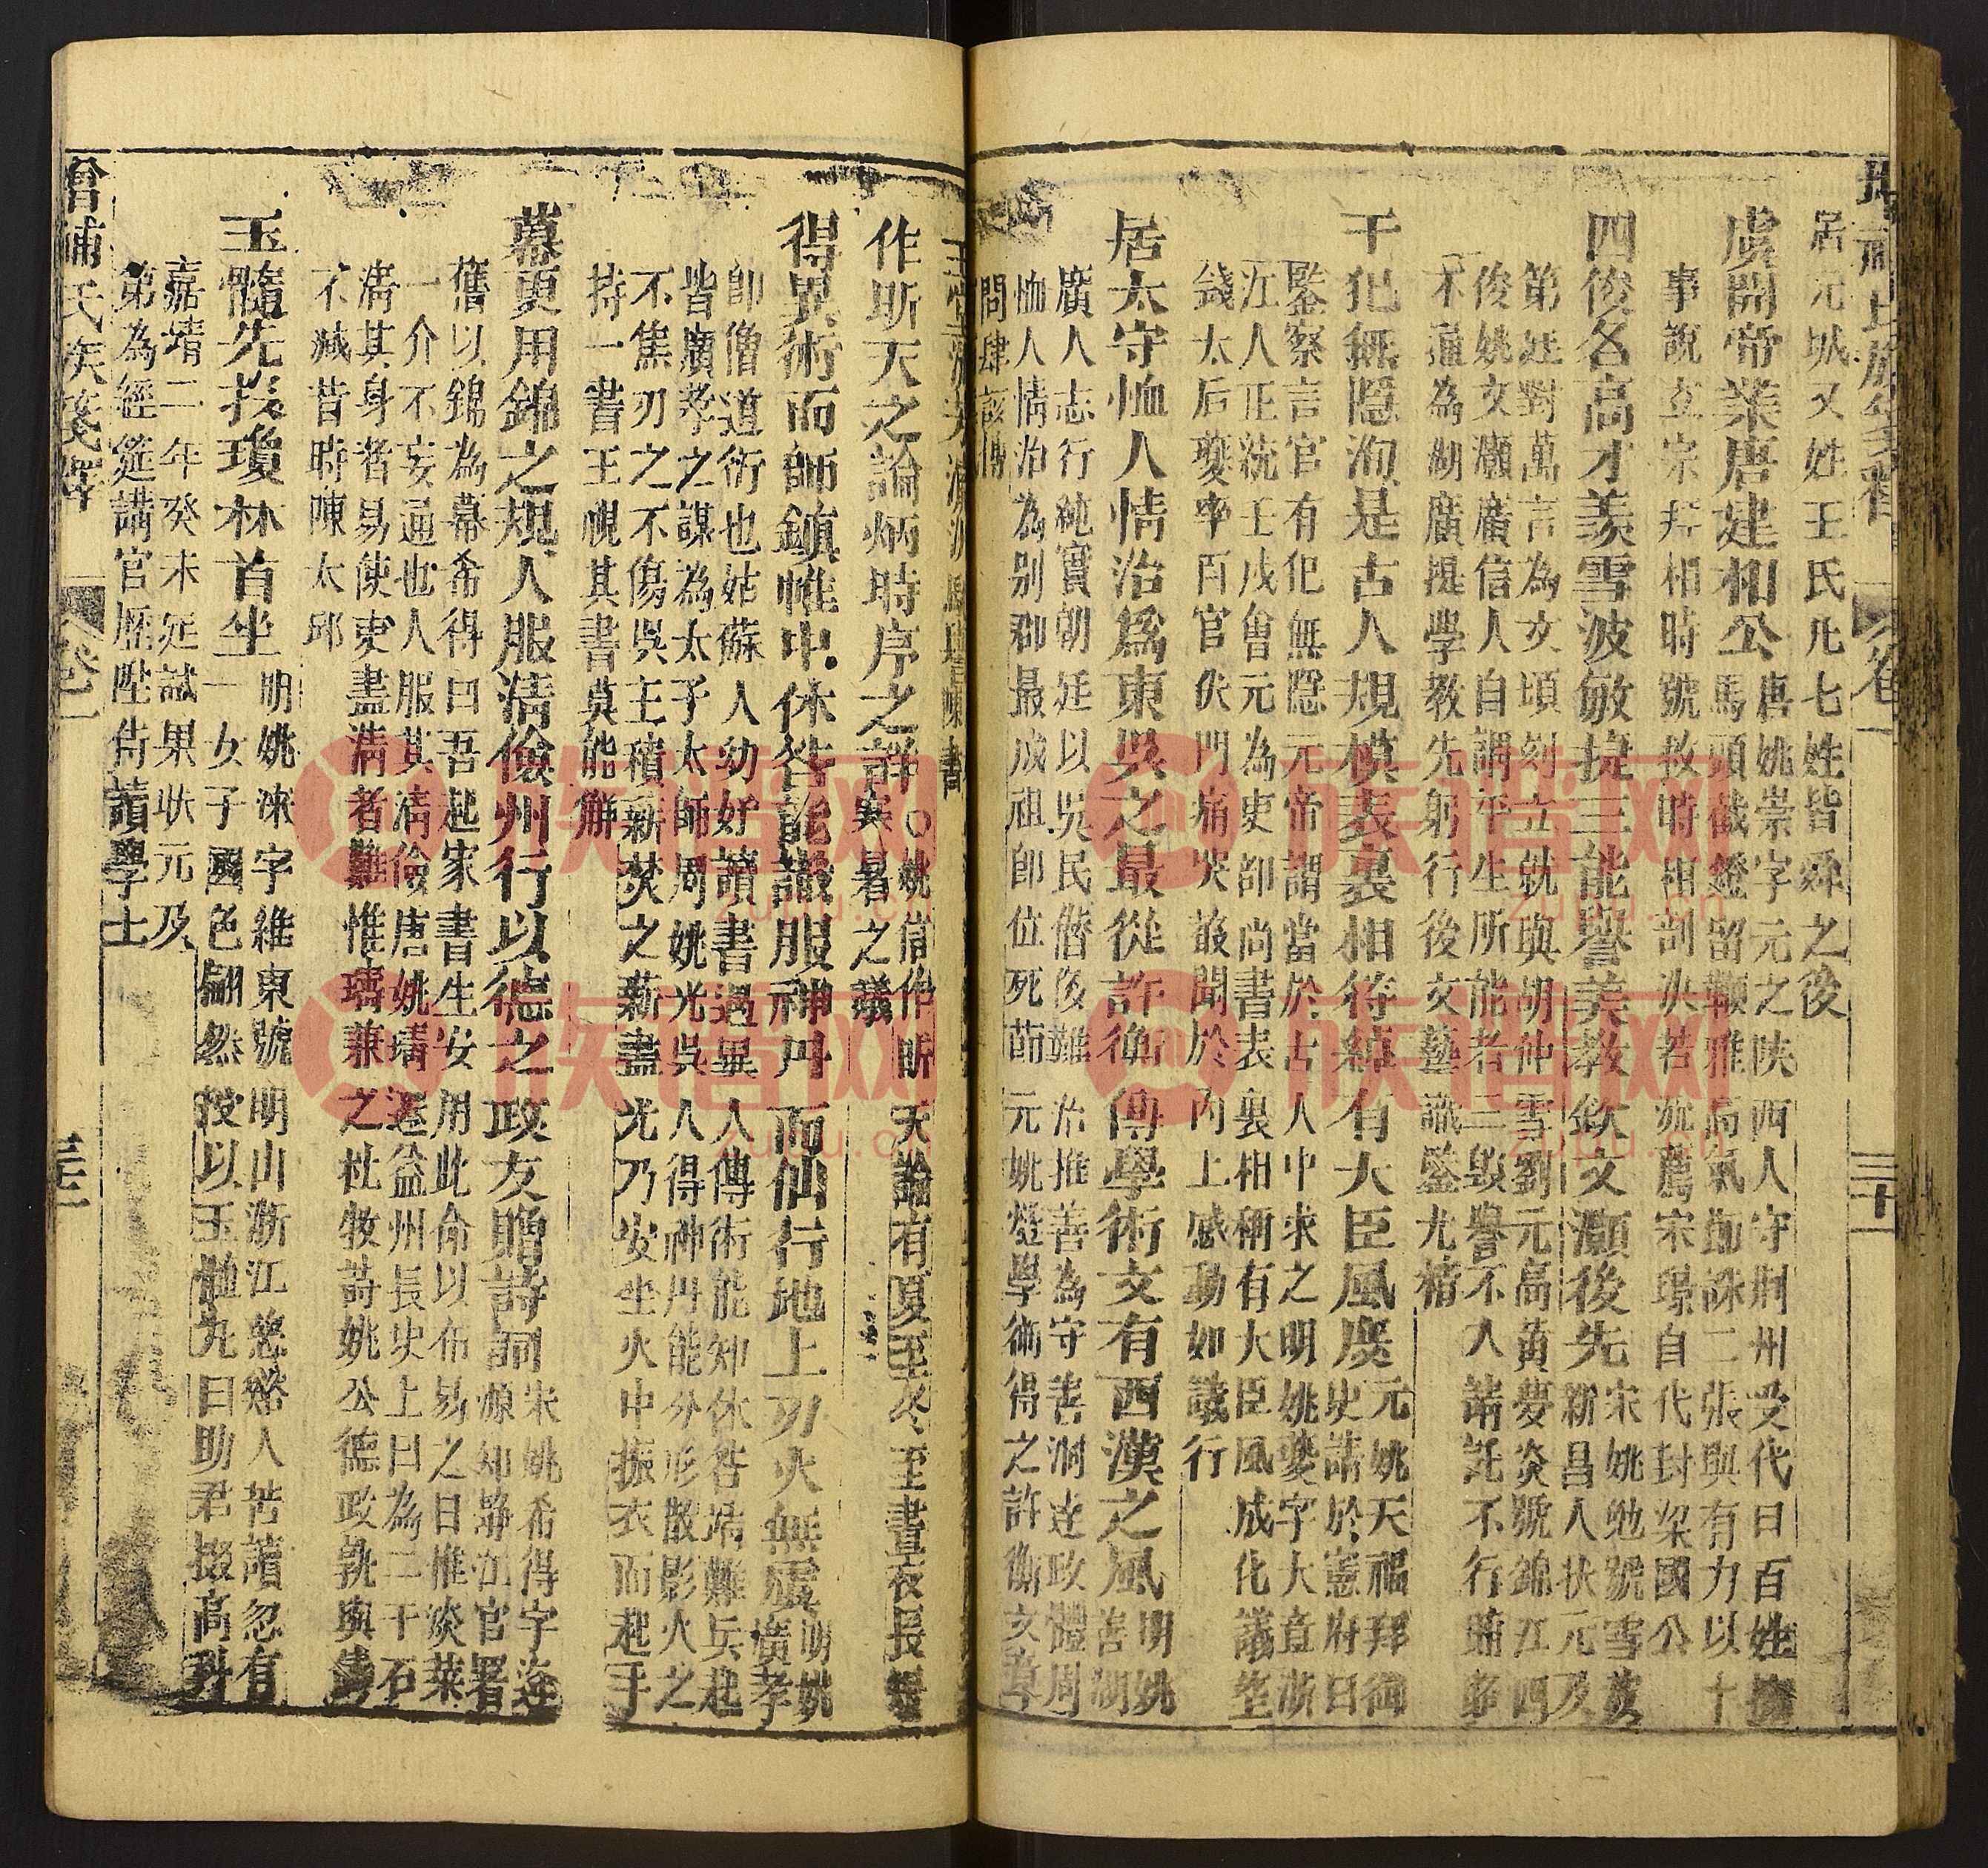 增補氏族箋釋 卷一 三十一
居元城又姓王氏凡七姓皆舜之後
虞開帝業唐建相公
唐姚崇字元之陝西人守荆州受代日百姓
馬頭截鐙留鞭雅高氣節誅二張與有力以十
事說立宗拜相時號救時相剖決若流薦宋璟自代封梁國公
四俊各高才羨雪波敏捷三能譽美教欽文灝後先
宋姚勉號雪
新昌人狀元及
第廷對萬言為文頃刻立就與胡仲雪劉元高黃夢炎號錦江四
俊姚文灝廣信人自謂平生所能者三毀譽不入請託不行
不通為湖廣提學教先躬行後文藝識鑒尤楷
干犯無隱洵是古人規模表裏相符綽有大臣風度
元姚天福拜御
史請於憲府曰
監察言官有犯無隱元帝謂當於古人中求之明姚夔字大章浙
江人正統壬戌會元為吏部尚書表裏相稱有大臣風成化議塟
錢太后夔率百官伏門痛哭聲聞於內上感動如議行
居太守恤人情治為東吳之最從許衡傳學術文有西漢之風
明姚
善湖
廣人志行純實朝廷以吳民偕後難治推善為守善洞達政體周
恤人情治為別郡最成祖即位死節元姚燧學術得之許衡文尊
作昕天之論炳時序之詳
姚信作昕天論有夏至冬至晝夜長
寒暑之議
得異術而師鎮惟中休咎能識服神丹而仙行地上刃火無虞
明姚
廣孝
即僧道衍也姑蘇人幼好讀書遇異人傳術能知休咎靖難兵起
皆廣孝之謀為太子太師周姚光吳人得神丹能分形散影火之
不焦刃之不傷吳主積薪焚之薪盡光乃安坐火中振衣而起手
持一書王視其書莫能解
幕更用錦之規人服清儉州行以德之政友贈詩詞
宋姚希得字逢
原知靜江官署
舊以錦為幕希得曰吾起家書生安用此命以布易之日惟淡菜
一介不妄通也人服其清儉唐姚璹遷益州長史上曰為二千石
清其身者易使吏盡清者難惟璹兼之杜牧詩姚公德政孰與
不減昔時陳太邱
玉髓先投瓊林首坐
明姚淶字維東號明山浙江慈谿人苦讀忽有
一女子國色翩然投以玉髓丸曰助君掇高科
嘉靖二年癸未廷試果狀元及
第為經筵講官歷陞侍讀學士
增補氏族箋釋 卷一 三十二